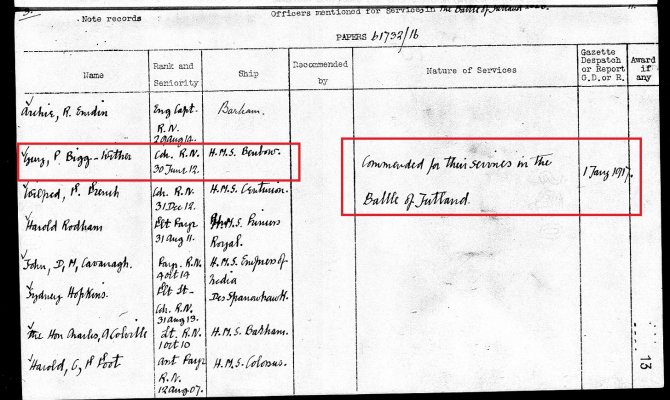 3.
Note records
Officers mentioned for Services in the Battle of Jutland
PAPERS b1732/16
Name
Rank and Seniority
Ship
Recommended by
Nature of Services
Gazette Despatch or Report G.D. or R.
Award if any
Archie, R. Emdin
Eng Capt. R.N.
Barham.
Guy, P. Bigg-Wither
Cdr. R.N.
30 June 12.
H.M.S. Benbow.
Commended for their services in the
Battle of Jutland.
1 Jany 1917.
Wilfred, H. French
Cdr. R.N.
31 Dec 12.
H.M.S. Centurion.
Harold Rodham
Payr
31 Aug 11.
H.M.S. Princess
Royal.
John, D, M, Cavanagh.
Payr. R.N.
4 Oct 14
H.M.S. Empress of
India
Sydney Hopkins.
Cdr. R.N.
31 Aug 13.
Des Sparrowhawk.
The Hon Charles, A Colville
Lt. R.N.
1 Oct 10
H.M.S. Barham.
Harold, C, H Foot
Asst Payr
R.N.
12 Aug 07.
H.M.S. Colossus.
13